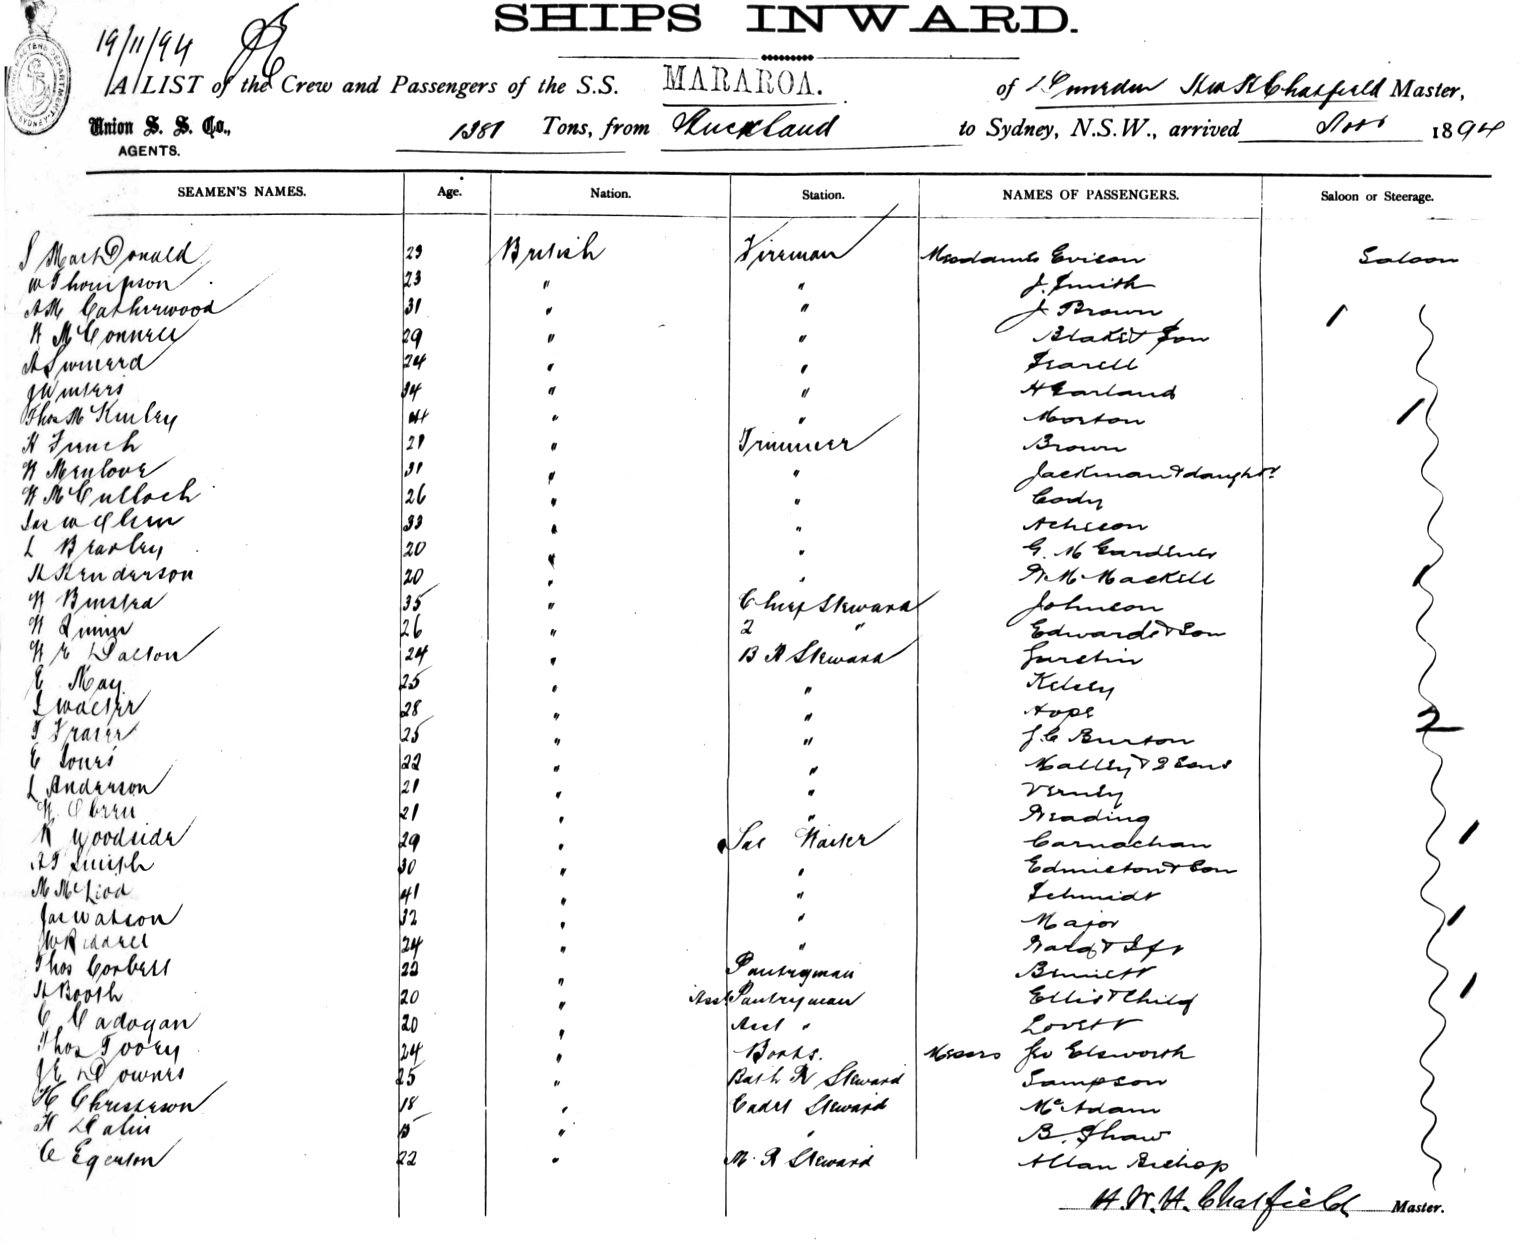 SHIPS INWARD.
19/11/94
A LIST of the Crew and Passengers of the S.S. MARAROA. of Dunedin Hen H Chatfield Master,
Union S. S. Co., 1381 Tons, from Auckland to Sydney, N.S.W., arrived Nov 1894
AGENTS.
SEAMEN'S NAMES. Age. Nation. Station. NAMES OF PASSENGERS. Saloon or Steerage.
MacDonald 29 British Fireman Mesdames Evison Saloon
W Thompson 23 " " J. Smith
A M Catherwood 31 " " J Brown 1
W McConnell 29 " " Blake & Son
A Swinerd 24 " "
J Winters 34 " " H Garland
Thos McKinley 44 " " Morton 1
H Finch 21 " Trimmer Brown
W Menlove 31 " " Jackman & daught
W McCulloch 26 " " Cody
33 " " Acheson
L Bearley 20 " " G. M Gardener
A Henderson 20 " " W M Mackell 1
W Binsted 35 " Chief Steward Johnson
W Quinn 26 " 2 " Edwards & Son
W E Dalton 24 " B R Steward
E May 25 " " Kelsey
Walter 28 " " Hope 2
T Fraser 25 " " J. C Burton
E Jones 22 " " Malley & 2 Sons
L Anderson 21 " "
W Obren 21 " " Reading
R Woodside 29 " Sal Waiter Carnachan 1
A T Smith 30 " " Edmiston & Son
M McLiod 41 " " Schmidt
Jas Watson 32 " " Major 1
J W Riddell 24 " "
Thos Corbett 22 " Pantryman Bennett
A Booth 20 " Asst Pantryman Ellis & Child 1
C Cadogan 20 " Asst " Lovett
Thos Tovey 24 " Boots. Messrs Geo Elsworth
J E Downes 25 " Bath R Steward Sampson
H Christeson 18 " Cadet Steward McAdam
H Dalin 15 " " B. Shaw
C Egerton 22 " M. R Steward Allan Bishop
H. W. H. Chatfield Master.